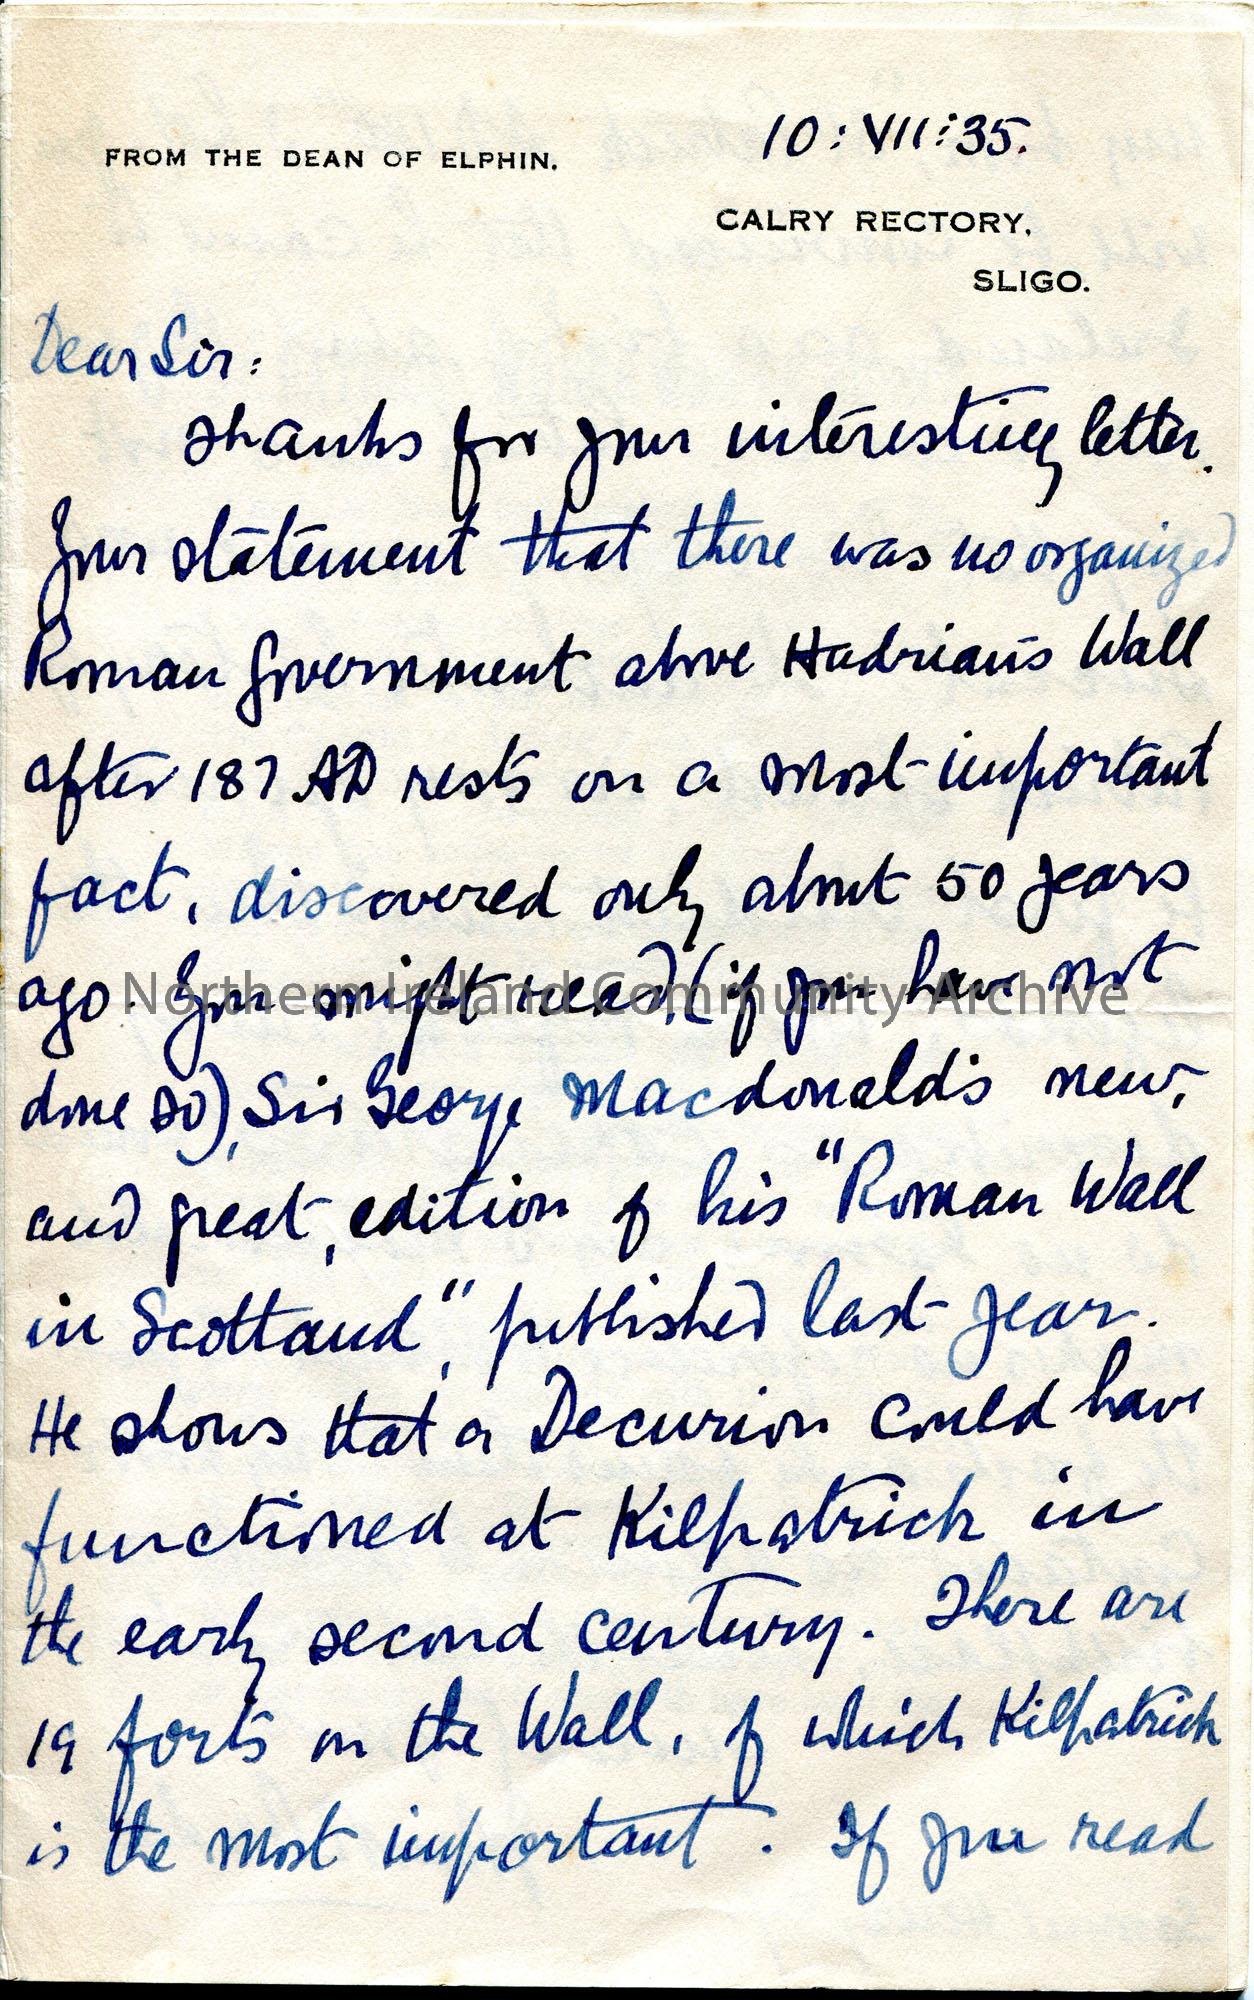 10:VII:35.
FROM THE DEAN OF ELPHIN.
CALRY RECTORY,
SLIGO.
Dear Sir:
Thanks for your interesting letter.
Your statement that there was no organized
Roman Government above Hadrian's Wall
after 187 AD rests on a most important
fact, discovered only about 50 years
ago. You might read, (if you have not
Northern Ireland Community Archive
done so), Sir George Macdonald's new,
and great, edition of his "Roman Wall
in Scotland", published last year.
He shows that a Decurion could have
functioned at Kilpatrick in
the early second century. There are
19 forts on the Wall, of which Kilpatrick
is the most important. If you read